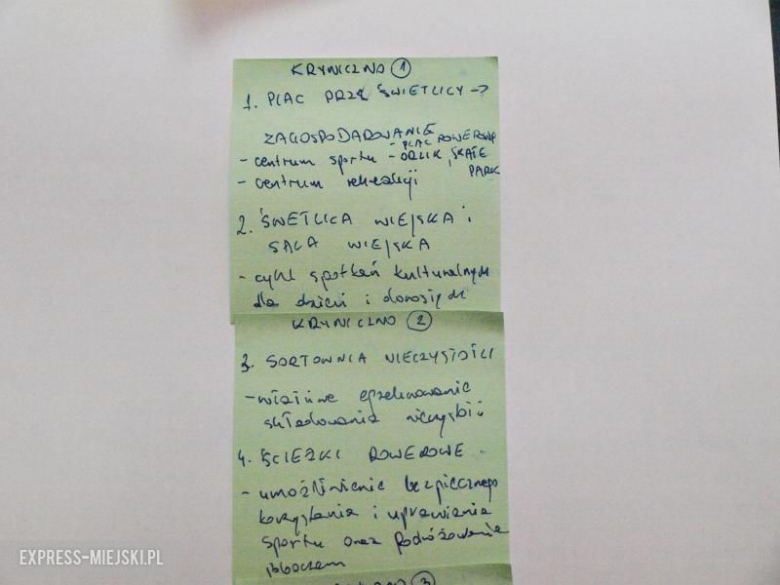 KRYNICZNO 1
1. PLAC PRZY ŚWIETLICY ->
ZAGOSPODAROWANIE
- PLAC ROWEROWY
- centrum sportu - ORLIK, SKATE
PARK
- centrum rekreacji
2. ŚWETLICA WIEJSKA i
SALA WIEJSKA
- cykl spotkań kulturalnych
dla dzieci i dorosłych
KRYNICZNO 2
3. SORTOWNIA NIECZYSTOŚCI
- właściwe egzekwowanie
składowania nieczystości
4. ŚCIEŻKI ROWEROWE
- umożliwienie bezpiecznego
korzystania i uprawiania
sportu oraz podróżowania
poboczem
3
EXPRESS-MIEJSKI.PL